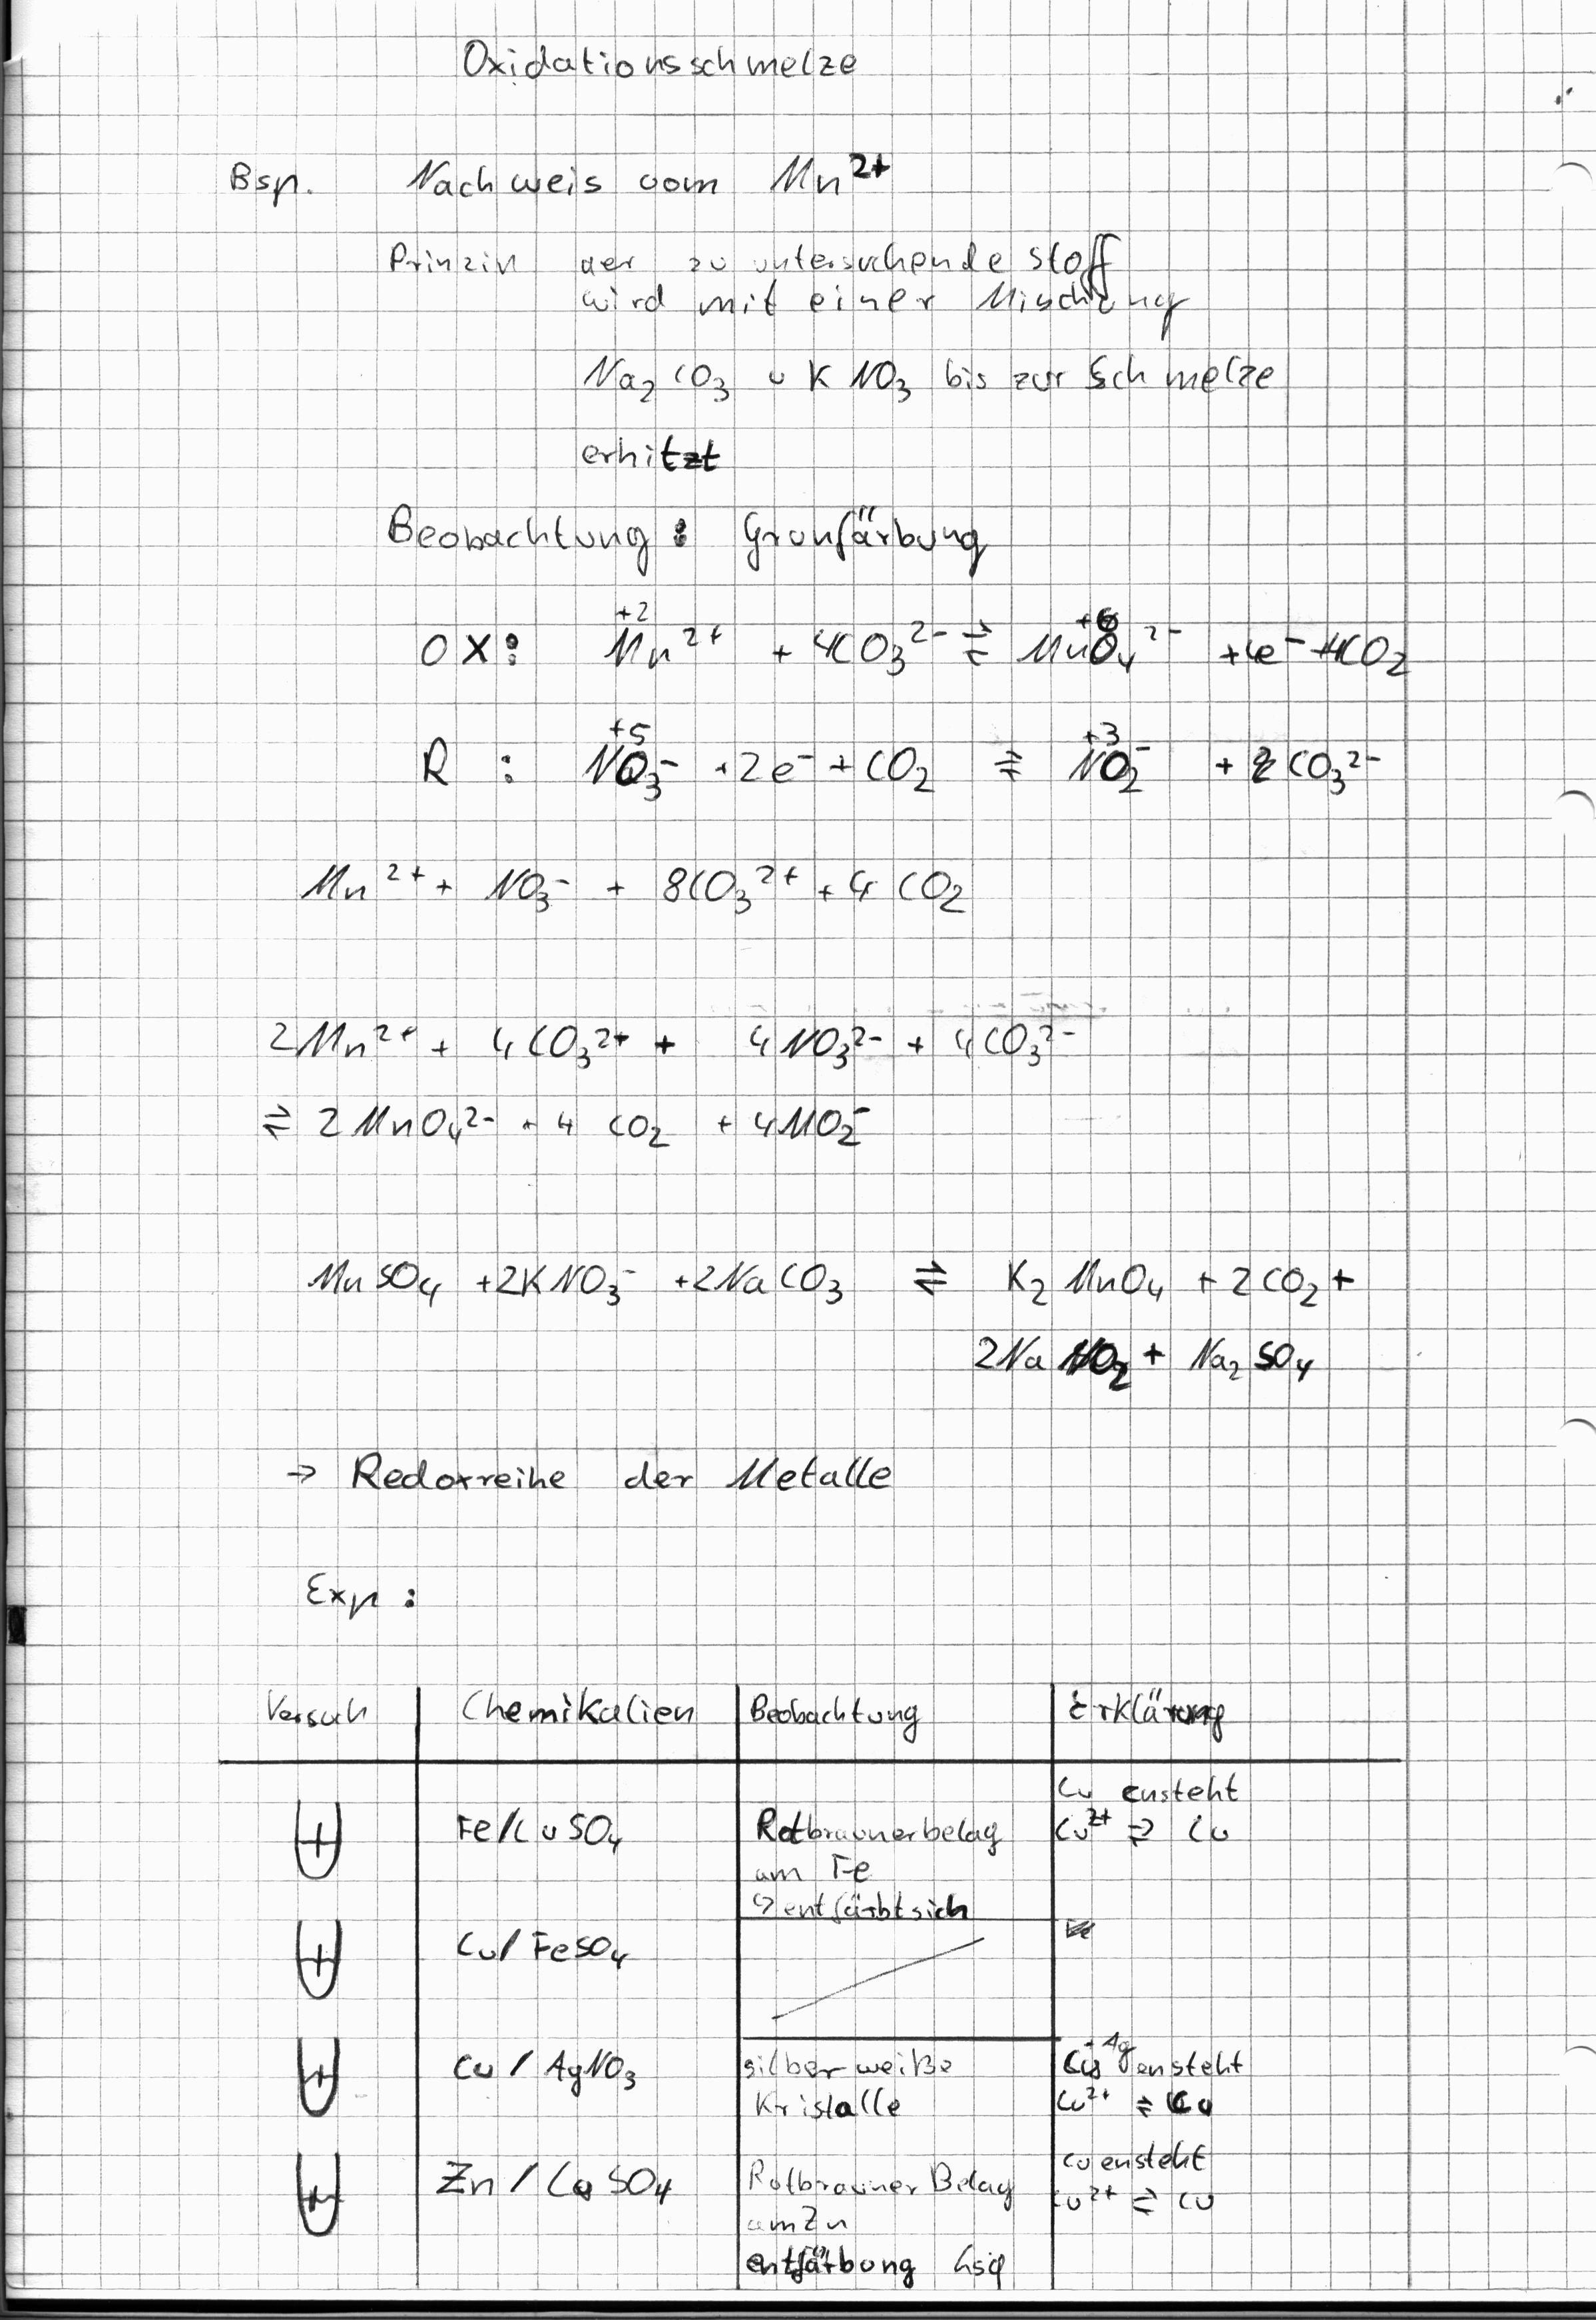 Oxidationsschmelze
Bsp. Nachweis vom Mn²⁺
Prinzip der zu untersuchende Stoff
wird mit einer Mischung
Na₂CO₃ u KNO₃ bis zur Schmelze
erhitzt
Beobachtung: Grünfärbung
OX: Mn²⁺ + 4CO₃²⁻ ⇌ MnO₄²⁻ + 4e⁻ + 4CO₂
+2 +6
R : NO₃⁻ + 2e⁻ + CO₂ ⇌ NO₂⁻ + CO₃²⁻
+5 +3
Mn²⁺ + NO₃⁻ + 8CO₃²⁺ + 4CO₂
2Mn²⁺ + 4CO₃²⁺ + 4NO₃²⁻ + 4CO₃²⁻
⇌ 2MnO₄²⁻ + 4 CO₂ + 4NO₂⁻
MnSO₄ + 2KNO₃⁻ + 2NaCO₃ ⇌ K₂MnO₄ + 2CO₂ +
2NaNO₂ + Na₂SO₄
→ Redoxreihe der Metalle
Exp :
Versuch Chemikalien Beobachtung Erklärung
Fe/CuSO₄ Rotbraunerbelag Cu ensteht
am Fe Cu²⁺ ⇌ Cu
↪ entfärbt sich
Cu/FeSO₄
Cu / AgNO₃ silber weiße Ag ensteht
Kristalle Cu²⁺ ⇌ Cu
Zn / CuSO₄ Rotbrauner Belag Cu ensteht
am Zn Cu²⁺ ⇌ Cu
entfärbung lsg